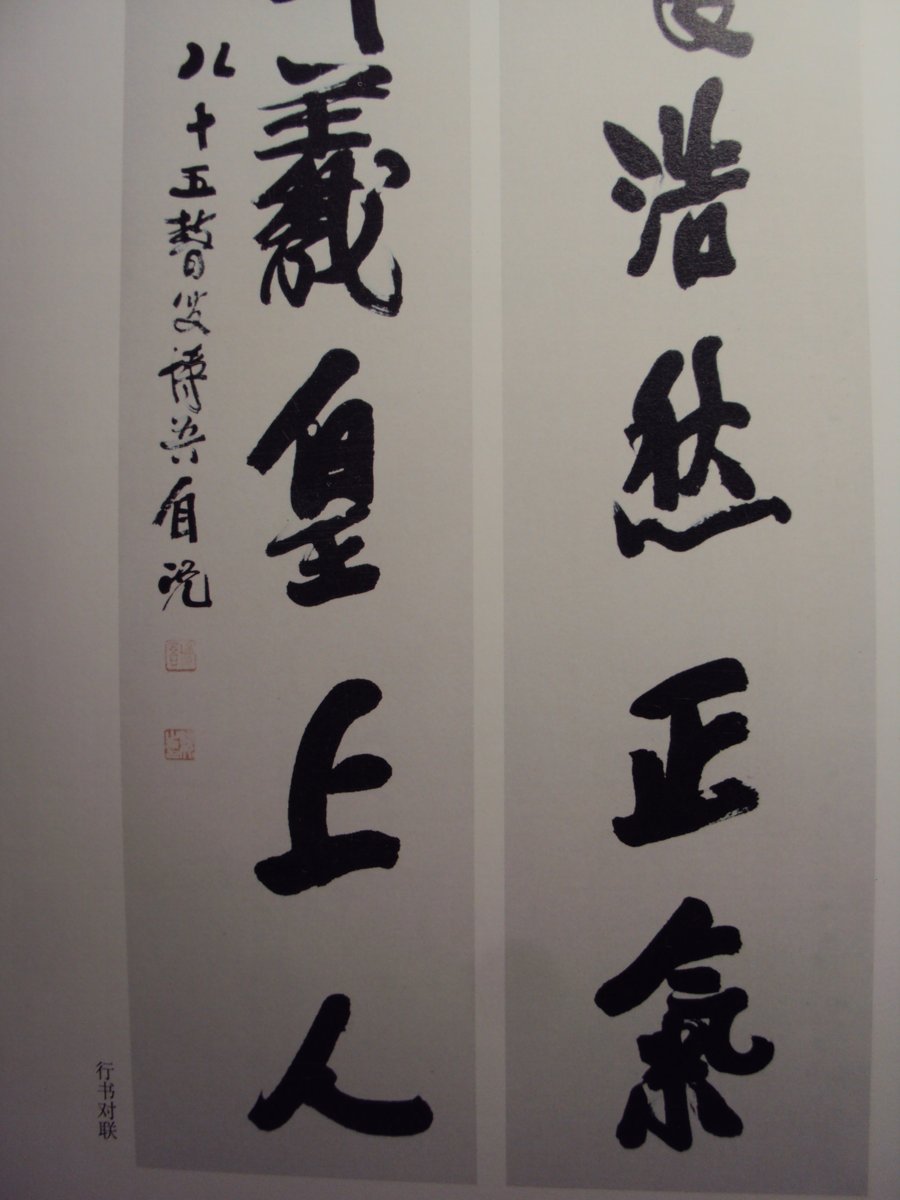 浩然正氣
羲皇上人
八十五瞽叟 自況
行书对联